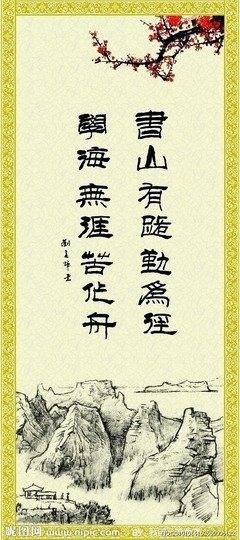 書山有路勤爲徑
學海無涯苦作舟
昵图网
www.nipic.com